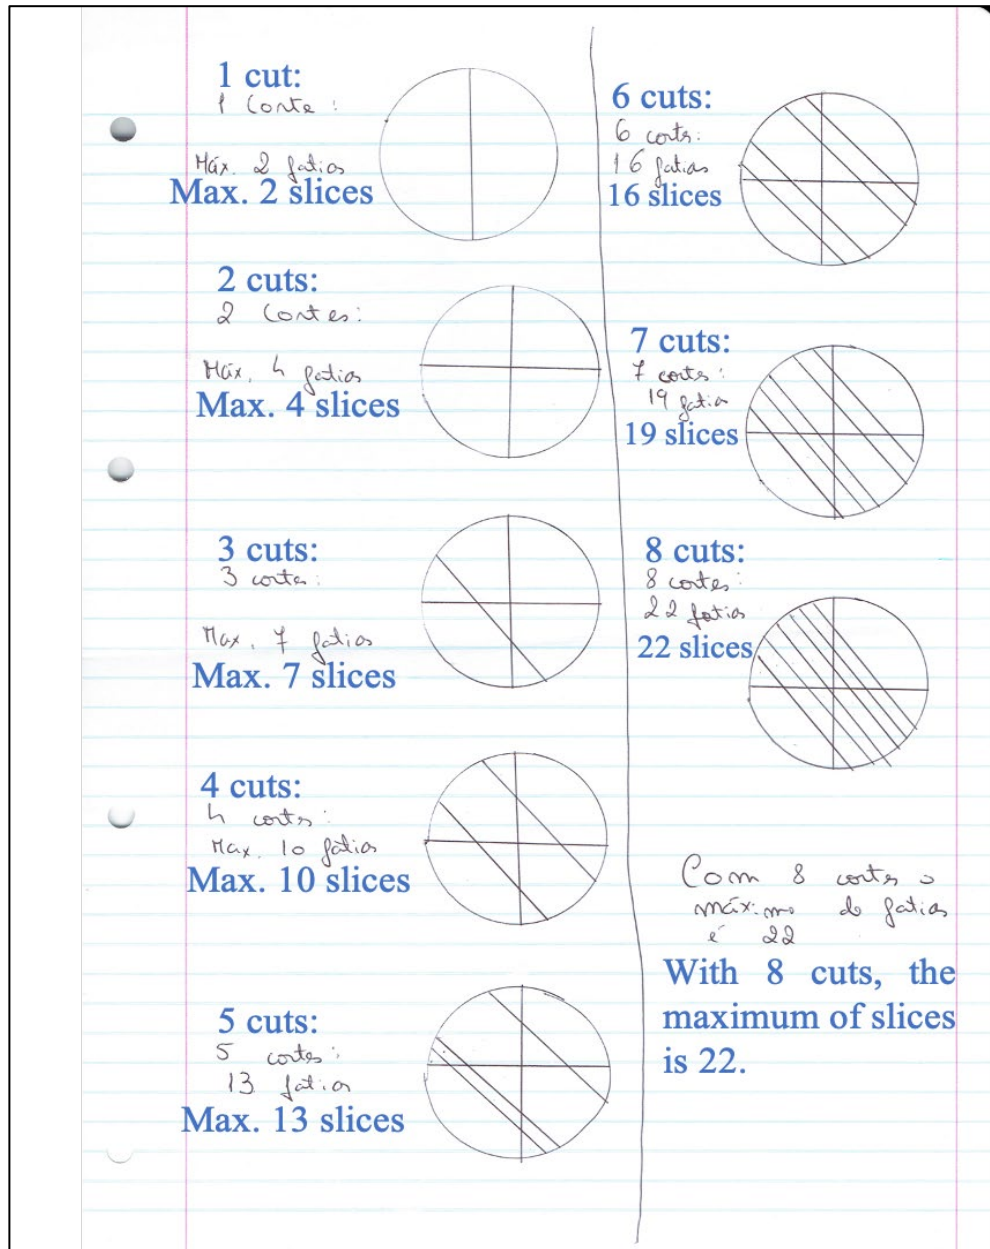 1 cut:
1 Corte :
Máx. 2 fatias
Max. 2 slices
2 cuts:
2 Cortes:
Máx. 4 fatias
Max. 4 slices
3 cuts:
3 cortes:
Max. 7 fatias
Max. 7 slices
4 cuts:
4 cortes:
Max. 10 fatias
Max. 10 slices
5 cuts:
5 cortes:
13 fatias
Max. 13 slices
6 cuts:
6 corts:
16 fatias
16 slices
7 cuts:
7 corts:
19 fatias
19 slices
8 cuts:
8 cortes:
22 fatias
22 slices
Com 8 cortes o
máximo de fatias
é 22
With 8 cuts, the
maximum of slices
is 22.